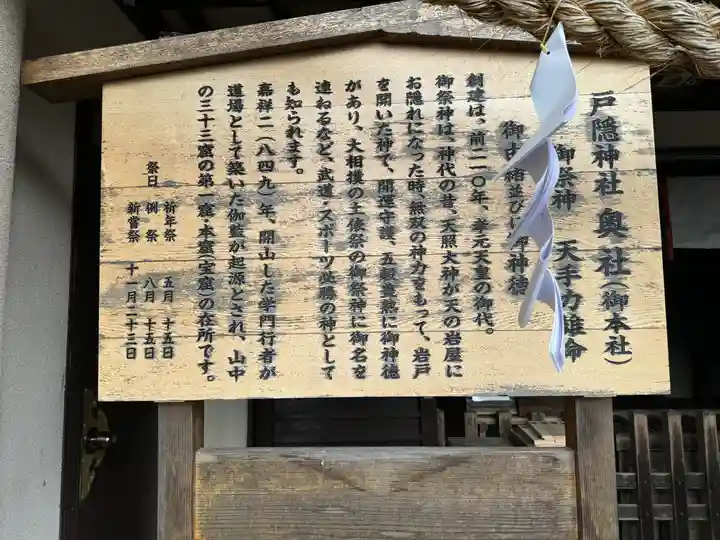 戸隠神社 奥社(御本社)
御祭神 天手力雄命
御由緒並びに御神徳
創建は、前二一〇年、孝元天皇の御代。
御祭神は、神代の昔、天照大神が天の岩屋に
お隠れになった時、無双の神力をもって、岩戸
を開いた神で、開運守護、五穀豊熟に御神徳
があり、大相撲の土俵祭の御祭神に御名を
連ねるなど、武道・スポーツ必勝の神として
も知られます。
嘉祥二(八四九)年、開山した学門行者が
道場として築いた伽藍が起源とされ、山中
の三十三窟の第一窟・本窟(宝窟)の在所です。
祭日 祈年祭 五月 十五日
例祭 八月 十五日
新嘗祭 十一月二十三日